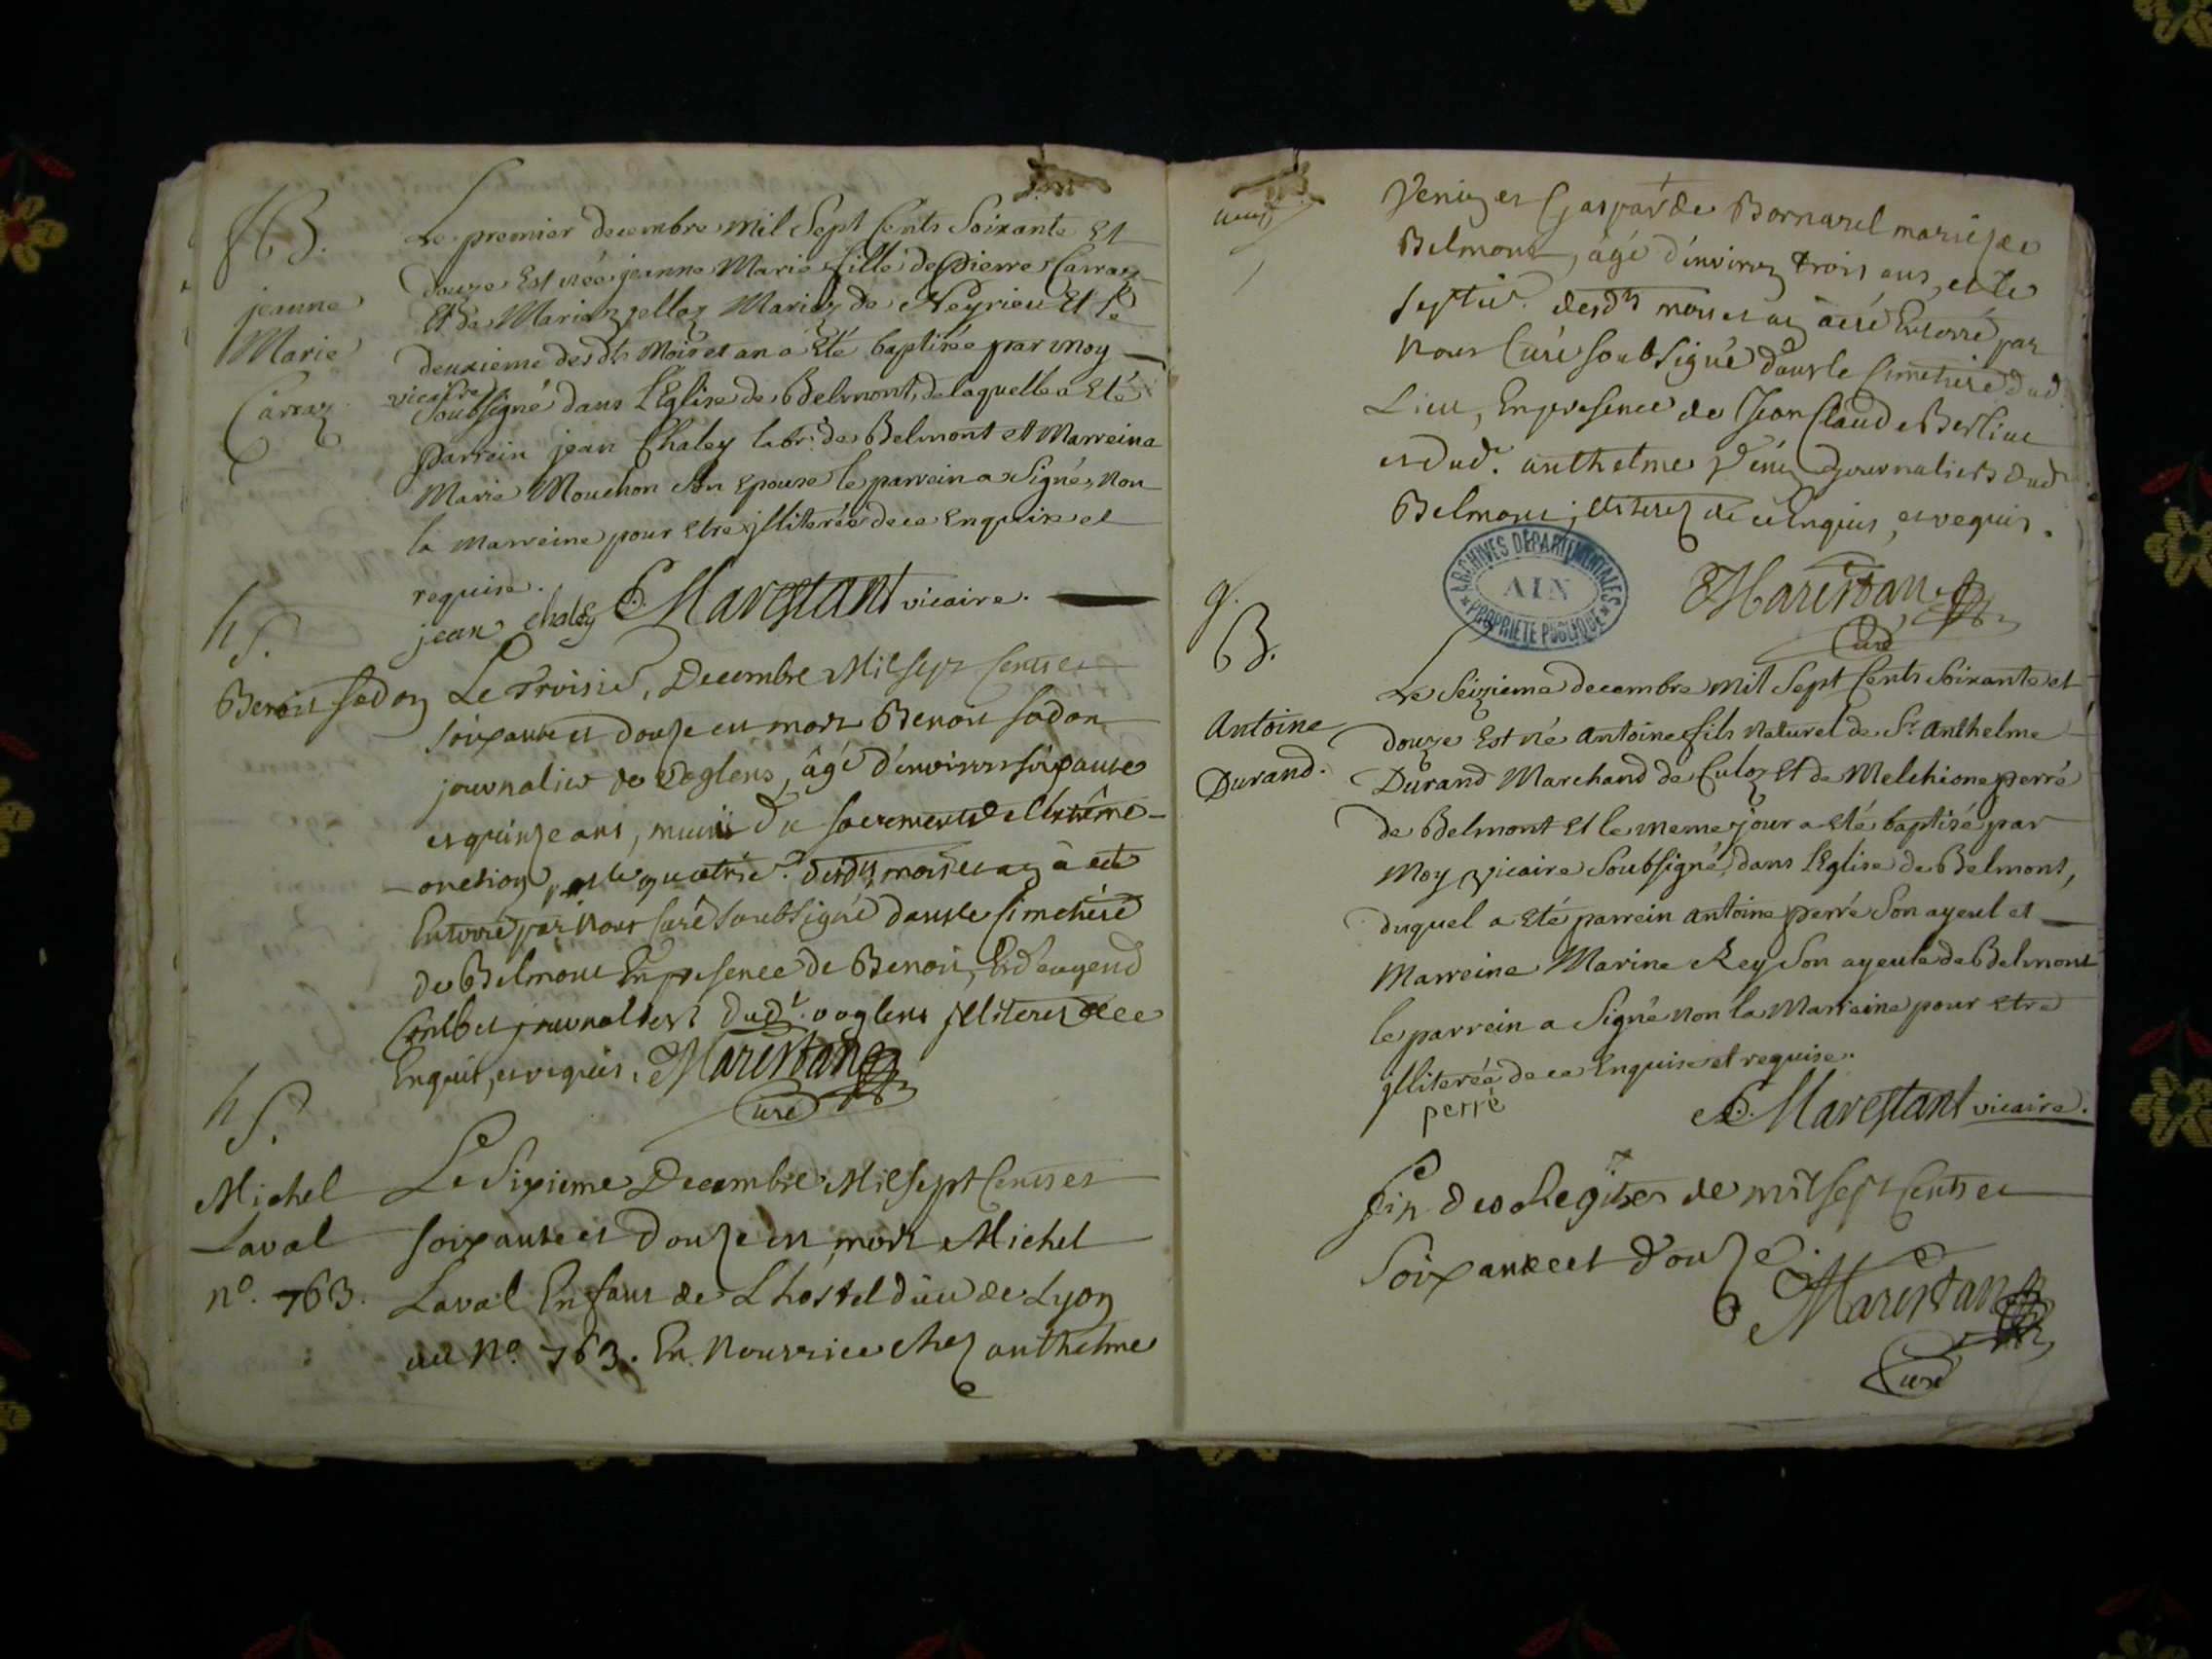 B.
jeanne
Marie
Carraz
Le premier decembre mil Sept Cents Soixante Et
douze Est née jeanne Marie fille de Pierre Carraz
Et de Marian pelloz Mariez de Neyrieu Et le
deuxieme desdts Mois et an a Eté baptisée par moy
vicaire
Soubsigné dans l'Eglise de Belmont, de laquelle a Eté
parrein jean Chaley labr. de Belmont et Marreina
Marie Mouchon Son Epouse le parrein a Signé, Non
la Marreine pour Etre jlliterée de ce Enquise et
requise.
jean chaley Marestant vicaire.
S.
Benoit Sadon
Le Troisie. Decembre Mil Sept Cents et
soixante et douze est mort Benoit Sadon
journalier de Voglens, âgé d'environ soixante
et quinze ans, muni du sacrement de l'extrême
onction, et le quatrie. desdts mois et an à eté
Enterré par Nous Curé soubsigné dans le Simetiere
de Belmont En presence de Benoit, Et d'eugend
Combet journaliers dudt. voglens jlliterez de ce
Enquis, et requis. Marestan
Curé
S.
Michel
Laval
no. 763.
Le Sixieme Decembre Mil Sept Cents et
soixante et douze est mort Michel
Laval Enfant de L'hostel dieu de Lyon
au No. 763. En Nourrice chez anthelme
Veniez et Gasparde Bornarel mariez de
Belmont, âgé d'environ trois ans, et le
septie. desdts mois et an à eté Enterré par
Nous Curé soubsigné dans le Cimetiere dud.
Lieu, En presence de Jean Claude Berline
et dudt. anthelme Veniez journaliers dudt
Belmont, illiterez de ce Enquis, et requis.
Marestan
Curé
ARCHIVES DÉPARTEMENTALES
AIN
PROPRIETE PUBLIQUE
B.
Antoine
Durand.
Le Seizieme decembre mil Sept Cents Soixante et
douze Est né Antoine fils Naturel de Sr. Anthelme
Durand Marchand de Culoz Et de Melchione perré
de Belmont Et le meme jour a Eté baptisé par
Moy Vicaire Soubsigné, dans l'Eglise de Belmont,
duquel a Eté parrein Antoine perré Son ayeul et
Marreine Marine Rey Son ayeule de Belmont
le parrein a Signé Non la Marreine pour Etre
jlliterée de ce Enquise et requise.
perré
Marestant vicaire.
Fin des Regitres de mil sept Cents et
Soixante et douze.
Marestan
Curé